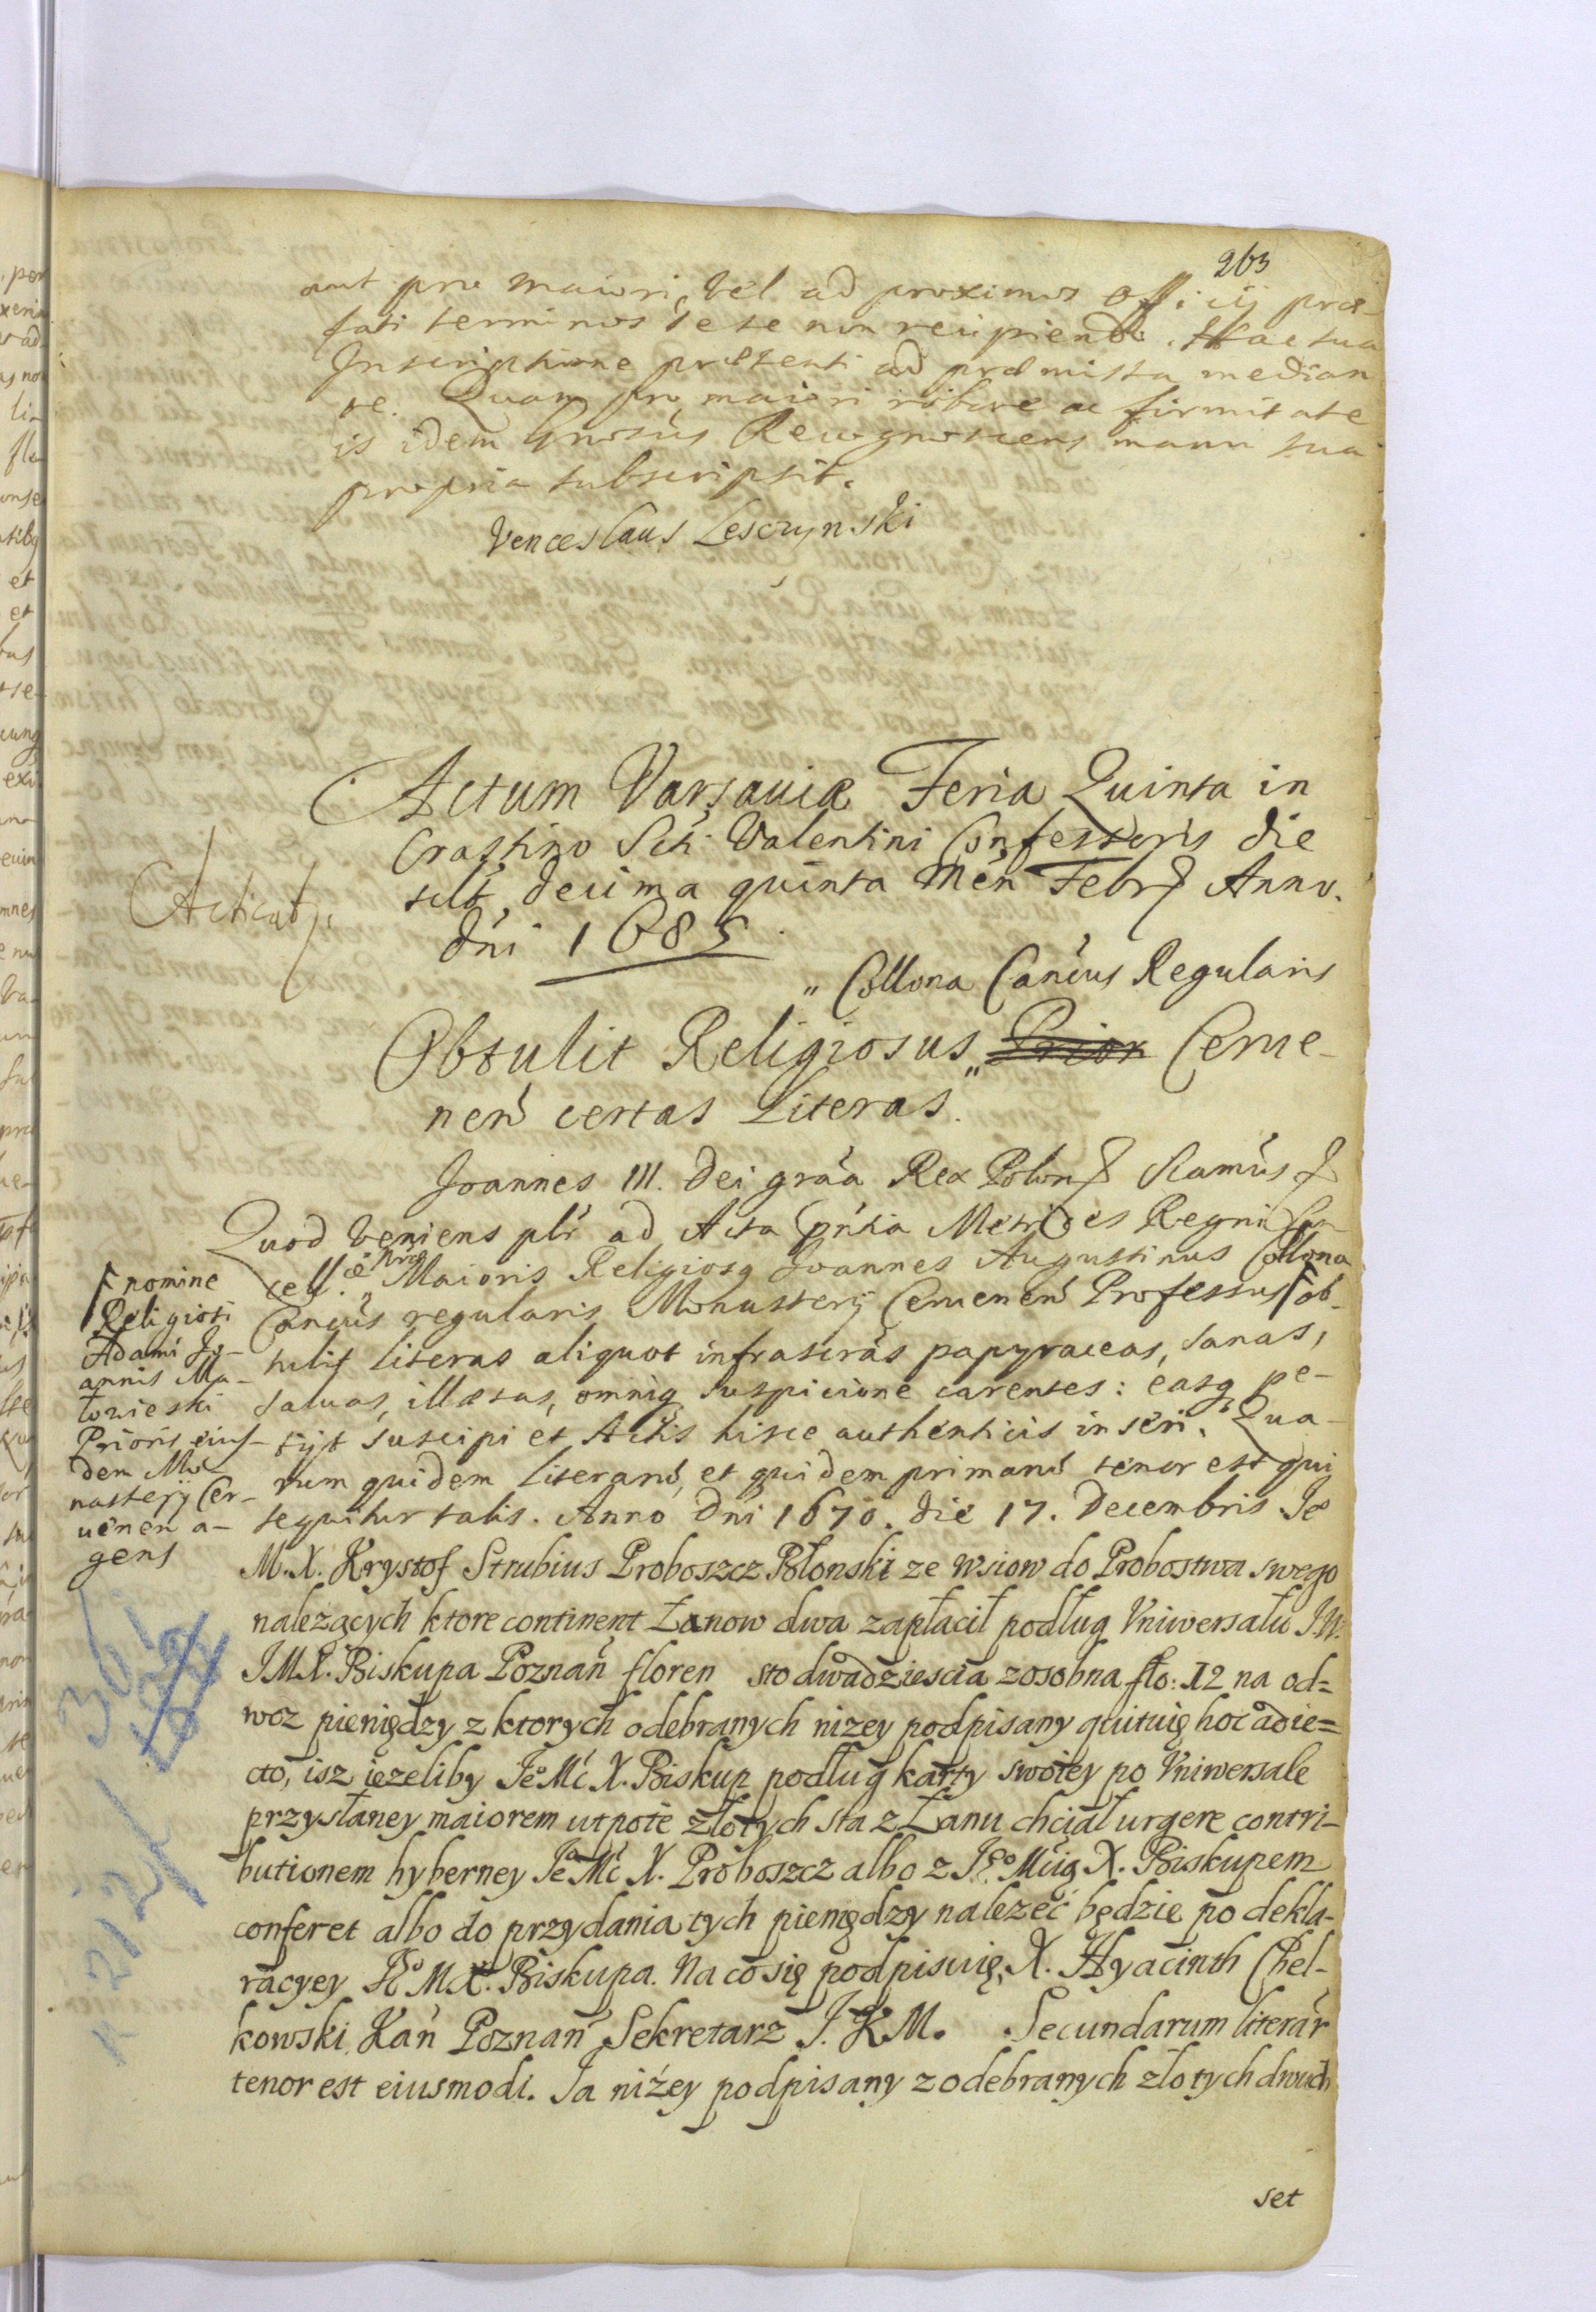 263
aut pro maiori, vel ad proximos Officij præ-
fati terminos se se non recipiendi. Hac sua
Inscriptione præsenti ad præmissa median
te. Quam pro maiori robore ac firmitate
is idem Gnosus Recognoscens manu sua
propria subscripsit.
Venceslaus Lesczynski
Actum Varsauiæ Feria Quinta in
Crastino Scti Valentini Confessoris die
scilt decima quinta Men Febr Anno
Dni 1685
Acticat
" Collona Cancus Regularis
Obtulit Religiosus " Prior Cerue-
nen certas Literas.
Joannes III. Dei graa Rex Polon Ramus
Quod veniens plr ad Acta pntia Metrices Regni Can
cell. æ nræ Maioris Religiosq Joannes Augustinus Collona
Cancus regularis Monasterij Ceruenen Professus ob-
tulit literas aliquot infrascras papyraceas, sanas,
saluas, illæsas, omniq suspicione carentes: easq pe-
tijt suscipi et Actis hisce authenticis inseri. Qua-
rum quidem Literaru, et quidem primaru tenor est qui
sequitur talis. Anno Dni 1670. die 17. Decembris Je
nomine
Religiosi
Adami Jo-
annis Ma-
Prioris eius-
dem Mo-
nasterij Cer-
uenen a-
gens
M. X. Krysztof Strubius Proboszcz Płonski ze wsiow do Probostwa swego
należących ktore continent Łanow dwa zapłacił podług Vniwersału J.W.
JMX. Biskupa Poznan floren sto dwadziescia zosobna flo: 12 na od=
woz pieniędzy z ktorych odebranych nizey podpisany quituię hoc adie=
cto, isz iezeliby JeoMc X. Biskup podług karty swoiey po Vniwersale
przysłaney maiorem utpote złotych sta z Łanu chciał urgere contri-
butionem hyberney JeoMc X. Proboszcz albo z JeoMcią X. Biskupem
conferet albo do przydania tych pieniędzy nalezeć będzie po dekla-
racyey Jeo M X. Biskupa. Na co się podpisuię, X. Hyacinth Chel-
kowski Kan Poznan Sekretarz J. K M. Secundarum literar
tenor est eiusmodi. Ja niżey podpisany z odebranych złotych dwuch
set